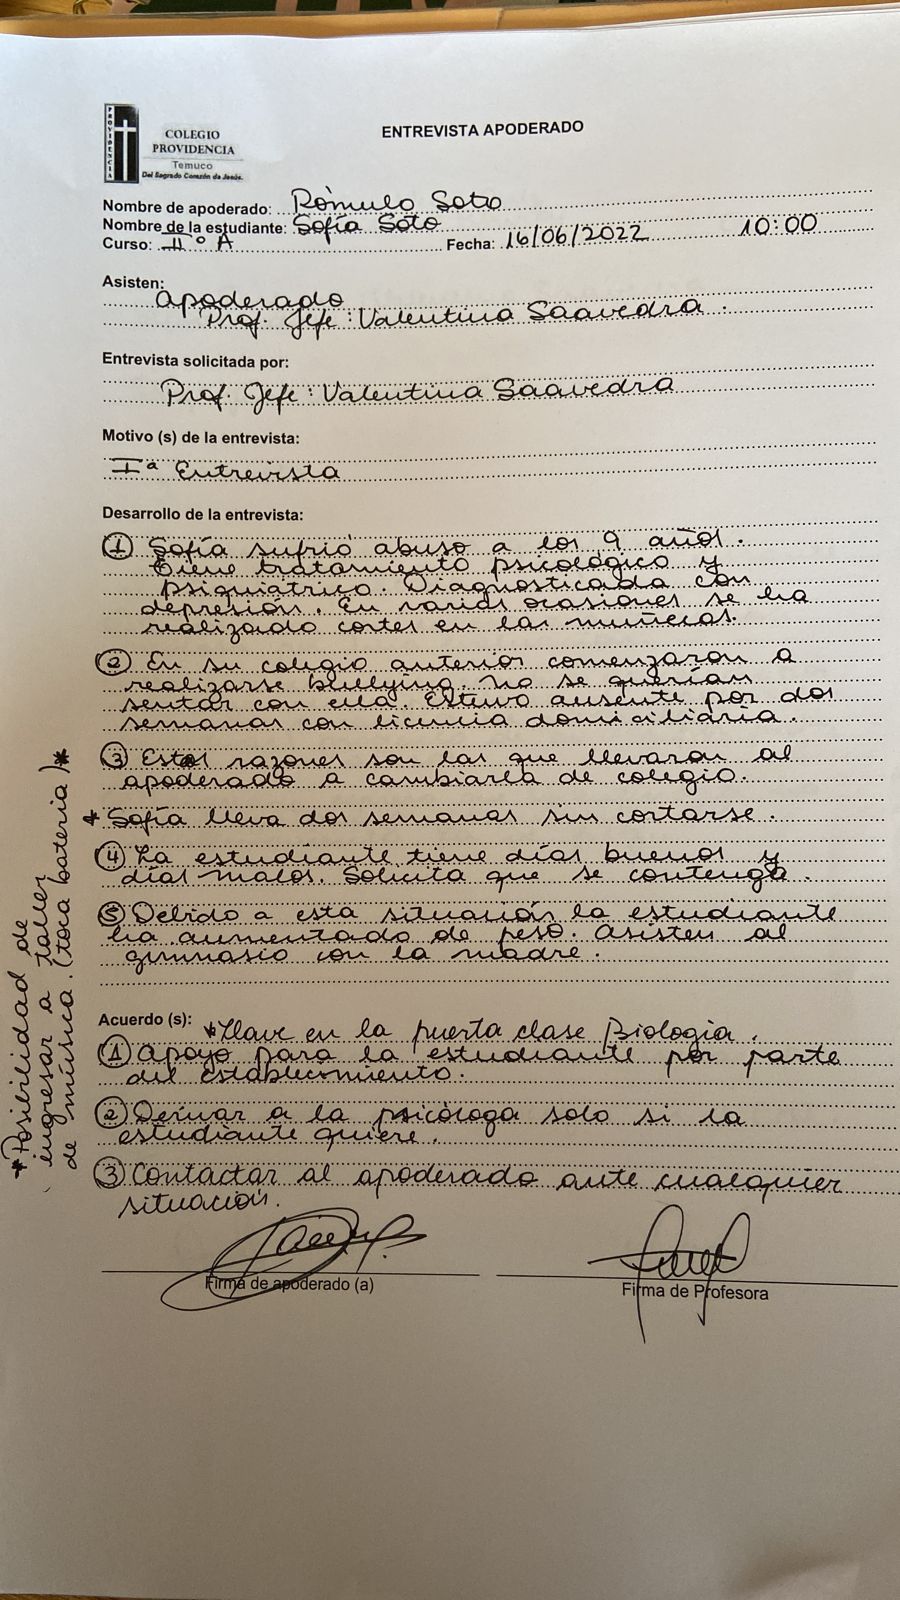 PROVIDENCIA
COLEGIO
PROVIDENCIA
Temuco
Del Sagrado Corazón de Jesús.
ENTREVISTA APODERADO
Nombre de apoderado: Rómulo Soto
Nombre de la estudiante: Sofía Soto
Curso: II° A Fecha: 16/06/2022 10:00
Asisten:
Apoderado
Prof. Jefe: Valentina Saavedra.
Entrevista solicitada por:
Prof. Jefe: Valentina Saavedra
Motivo (s) de la entrevista:
Iª Entrevista
Desarrollo de la entrevista:
① Sofía sufrió abuso a los 9 años.
Tiene tratamiento psicológico y
psiquiatrico. Diagnosticada con
depresión. En varias ocasiones se ha
realizado cortes en las muñecas.
② En su colegio anterior comenzaron a
realizarse bullying. No se querían
sentar con ella. Estuvo ausente por dos
semanas con licencia domiciliaria.
③ Estas razones son las que llevaron al
apoderado a cambiarla de colegio.
* Sofía lleva dos semanas sin cortarse.
④ La estudiante tiene días buenos y
días malos. Solicita que se contenga.
⑤ Debido a esta situación la estudiante
ha aumentado de peso. Asisten al
gimnasio con la madre.
* Posibilidad de
ingresar a taller
de música. (toca bateria) *
Acuerdo (s): * Llave en la puerta clase Biología.
① Apoyo para la estudiante por parte
del establecimiento.
② Derivar a la psicóloga solo si la
estudiante quiere.
③ Contactar al apoderado ante cualquier
situación.
Firma de apoderado (a)
Firma de Profesora